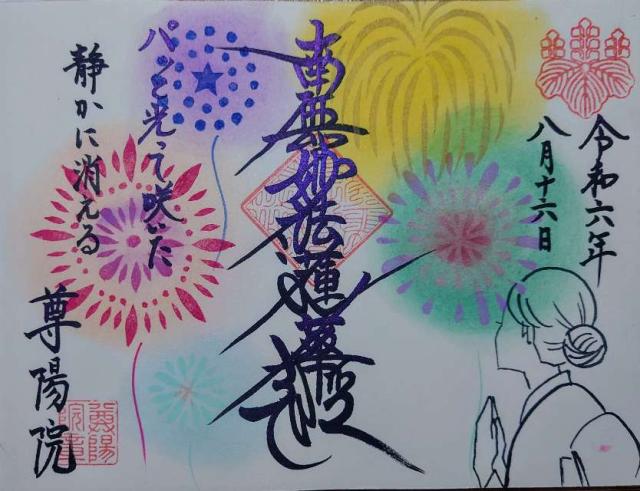 令和六年
八月十六日
南無妙法蓮華経
パッと光って咲いた
静かに消える
尊陽院